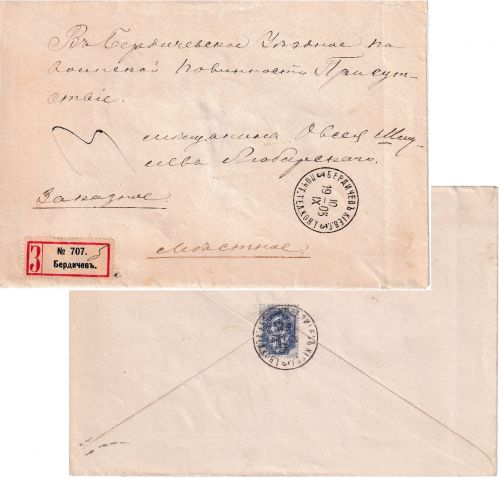 Въ Бердичевское Уѣздное по
воинской повинности Присут-
ствіе.
мѣщанина Овсея Шму
лева Любарскаго.
Заказное
Мѣстное
№ 707.
З Бердичевъ.
БЕРДИЧЕВЪ КІЕВ. Г.
10 IX
19 05
ПОЧ. ТЕЛ. КОНТ.